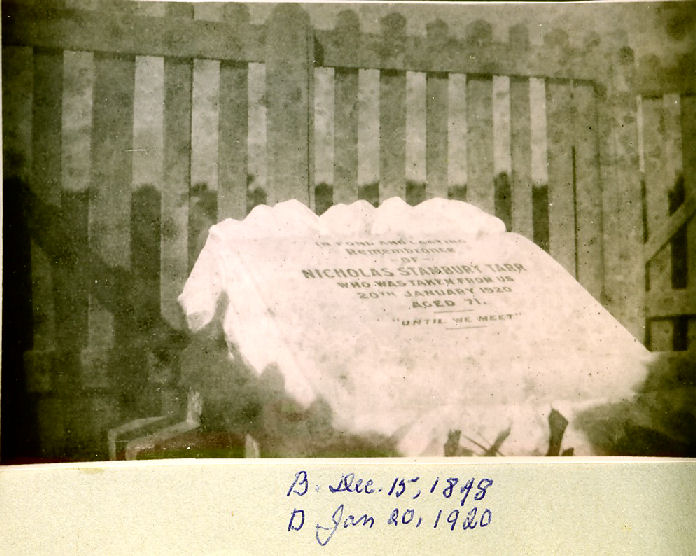 IN FOND AND LOVING
Remembrance
- OF -
NICHOLAS STANBURY TABR
WHO WAS TAKEN FROM US
20TH JANUARY 1920
AGED 71.
"UNTIL WE MEET"
B. Dec. 15, 1848
D Jan 20, 1920